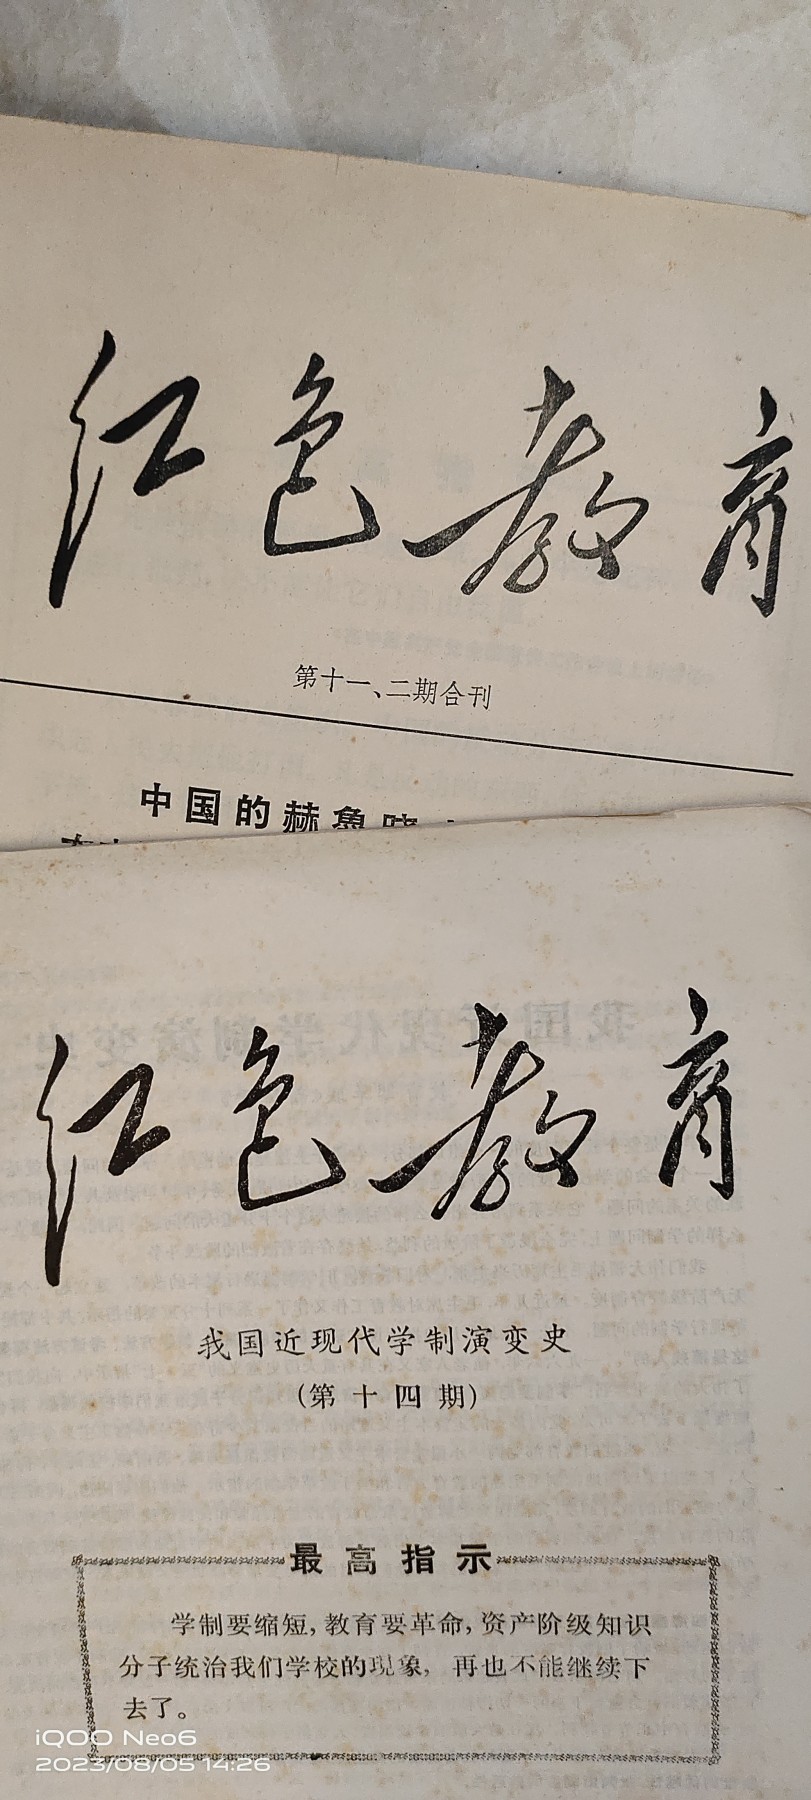 红色教育
第十一、二期合刊
中国的赫鲁晓
红色教育
我国近现代学制演变史
(第十四期)
最高指示
学制要缩短,教育要革命,资产阶级知识
分子统治我们学校的现象,再也不能继续下
去了。
iQOO Neo6
2023/08/05 14:26